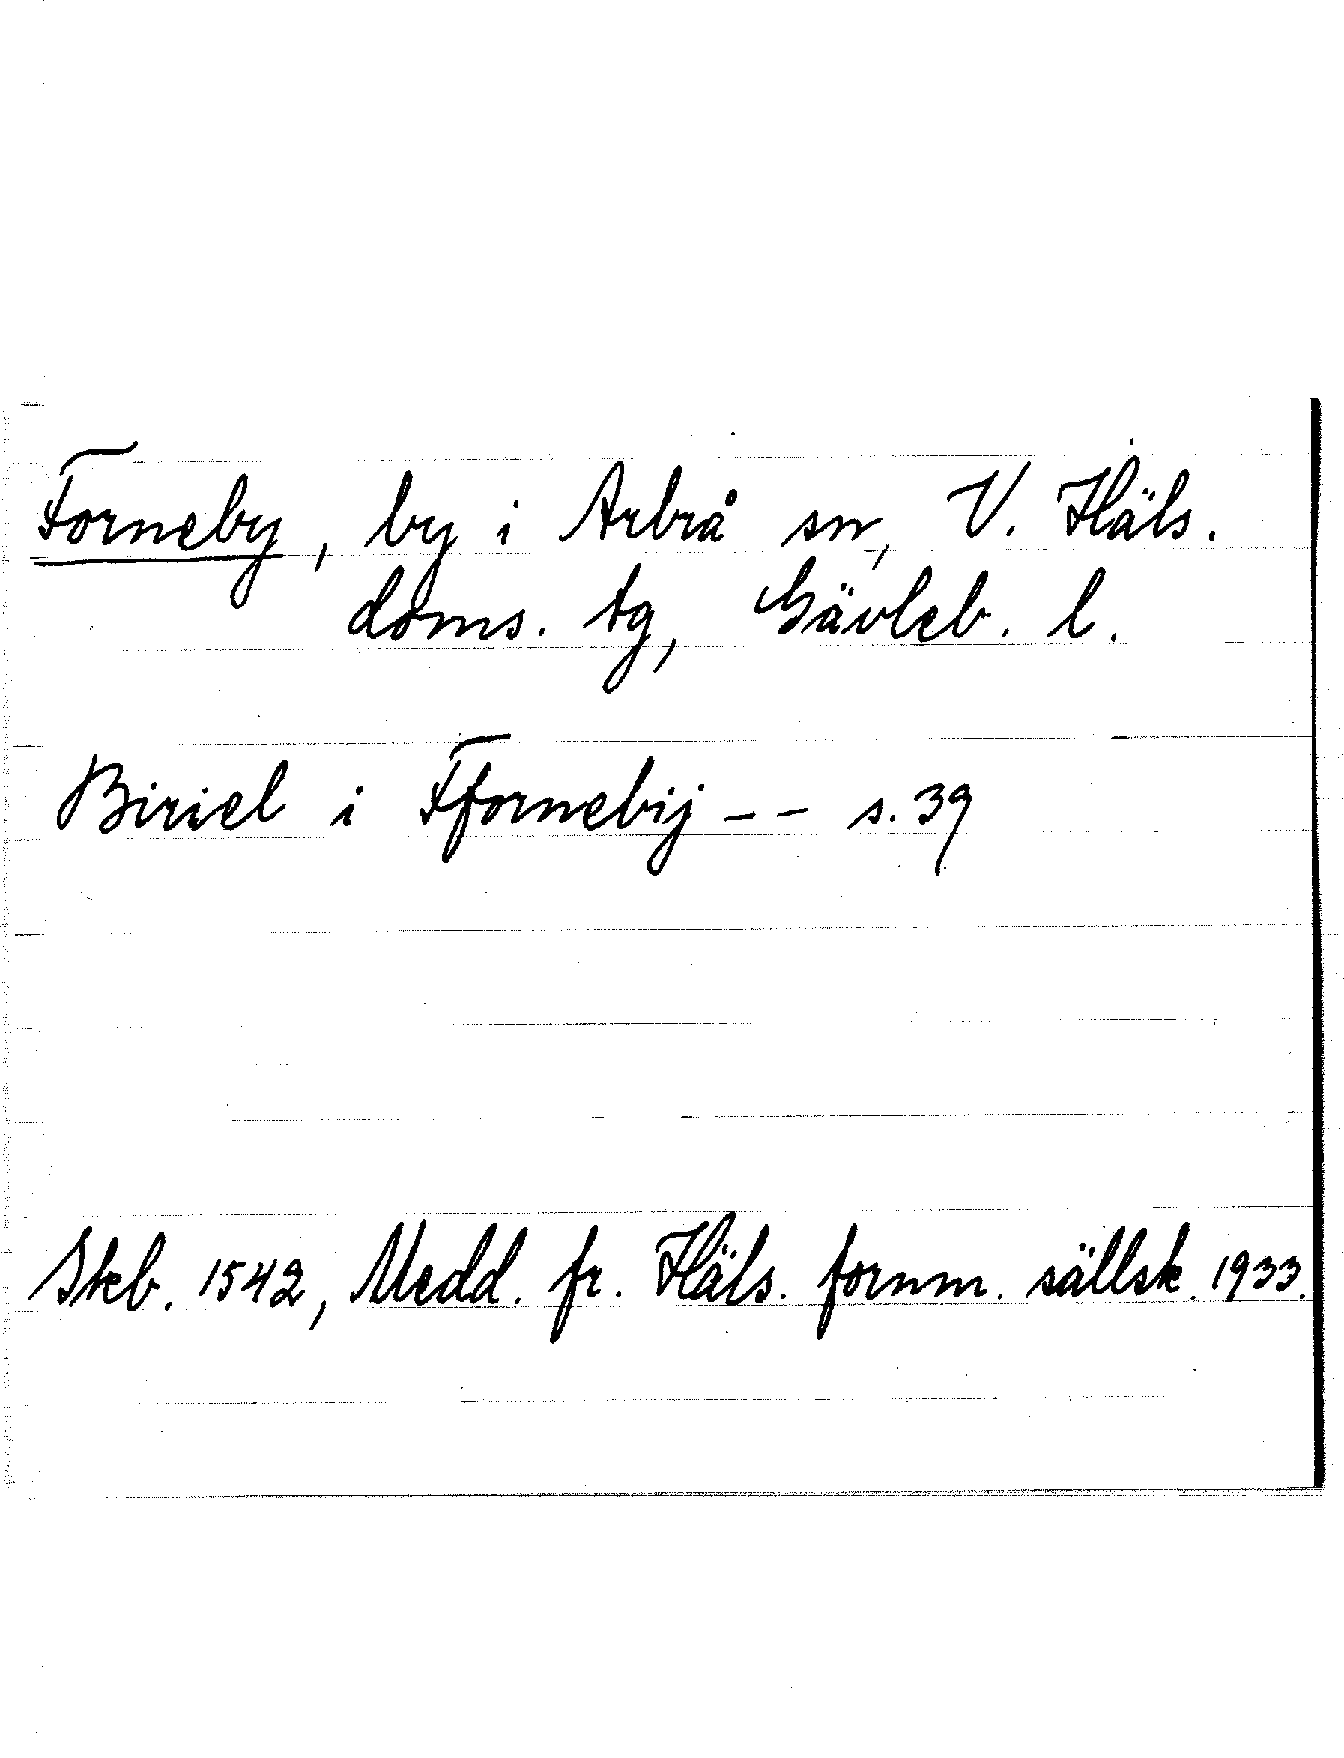 Forneby, by i Arbrå sn, V. Häls.
doms. tg, Gävleb. l.
Biriel i Ffornebij -- s. 39
Skb. 1542, Medd. fr. Häls. fornm. sällsk. 1933.